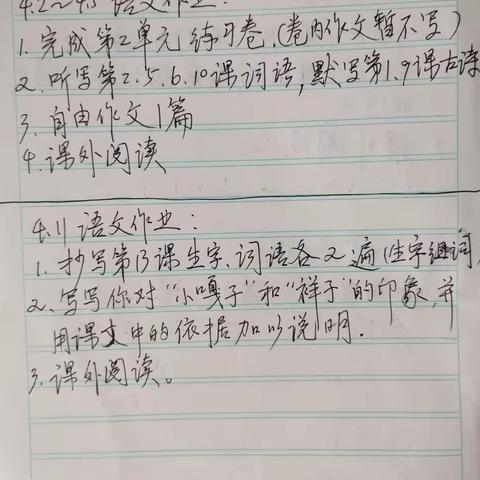 4.2~4.5 语文作业:
1. 完成第2单元练习卷.(卷内作文暂不写)
2. 听写第2.5.6.10课词语,默写第1.9课古诗
3. 自由作文1篇
4. 课外阅读
4.11 语文作业:
1. 抄写第13课生字、词语各2遍(生字组词
2. 写写你对“小嘎子”和“祥子”的印象,并
用课文中的依据加以说明.
3. 课外阅读。